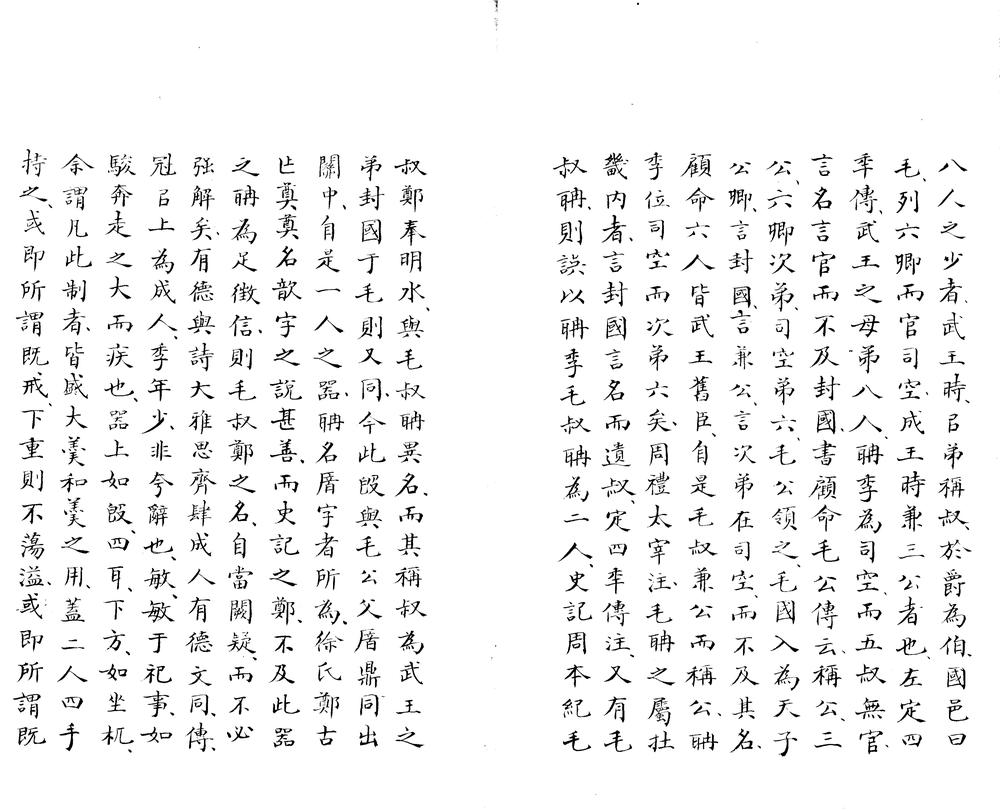 八人之少者、武王時、㠯弟稱叔、於爵為伯、國邑曰
毛、列六卿而官司空、成王時兼三公者也、左定四
年傳、武王之母弟八人、聃季為司空、而五叔無官、
言名言官而不及封國、書顧命毛公傳云、稱公、三
公、六卿次弟、司空弟六、毛公領之、毛國入為天子
公卿、言封國、言兼公、言次弟在司空、而不及其名、
顧命六人皆武王舊臣、自是毛叔兼公而稱公、聃
季位司空而次弟六矣、周禮太宰注、毛聃之屬在
畿内者、言封國言名而遺叔、定四年傳注、又有毛
叔聃、則誤以聃季毛叔聃為二人、史記周本紀毛
叔鄭奉明水、與毛叔聃異名、而其稱叔為武王之
弟封國于毛則又同、今此𣪘與毛公父㕆鼎同出
關中、自是一人之器、聃名㕆字者所為、徐氏鄭古
㠯奠奠名歆字之說甚善、而史記之鄭、不及此器
之聃為足徵信、則毛叔鄭之名、自當闕疑、而不必
强解矣、有德與詩大雅思齊肆成人有德文同、傳、
冠㠯上為成人、季年少、非夸辭也、敏、敏于祀事、如
駿奔走之大而疾也、器上如𣪘、四耳、下方、如坐杌、
余謂凡此制者、皆盛大羹和羹之用、蓋二人四手
持之、或即所謂既戒、下重則不蕩溢、或即所謂既